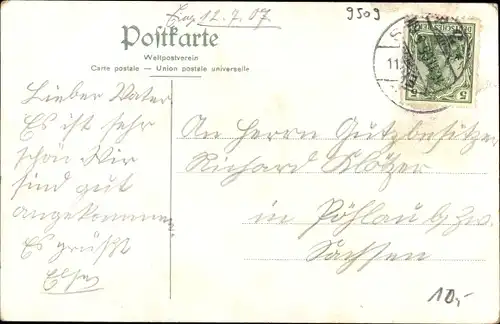 12.7.07
9509
Postkarte
Weltpostverein
Carte postale — Union postale universelle
11
5 5
Lieber Vater
Es ist sehr
schön Wir
sind gut
angekommen
Es grüßt
Else
An Herrn Gutzbesitzer
Richard Klötzer
in Pöhlau b/ Zw.
Sachsen
10,-